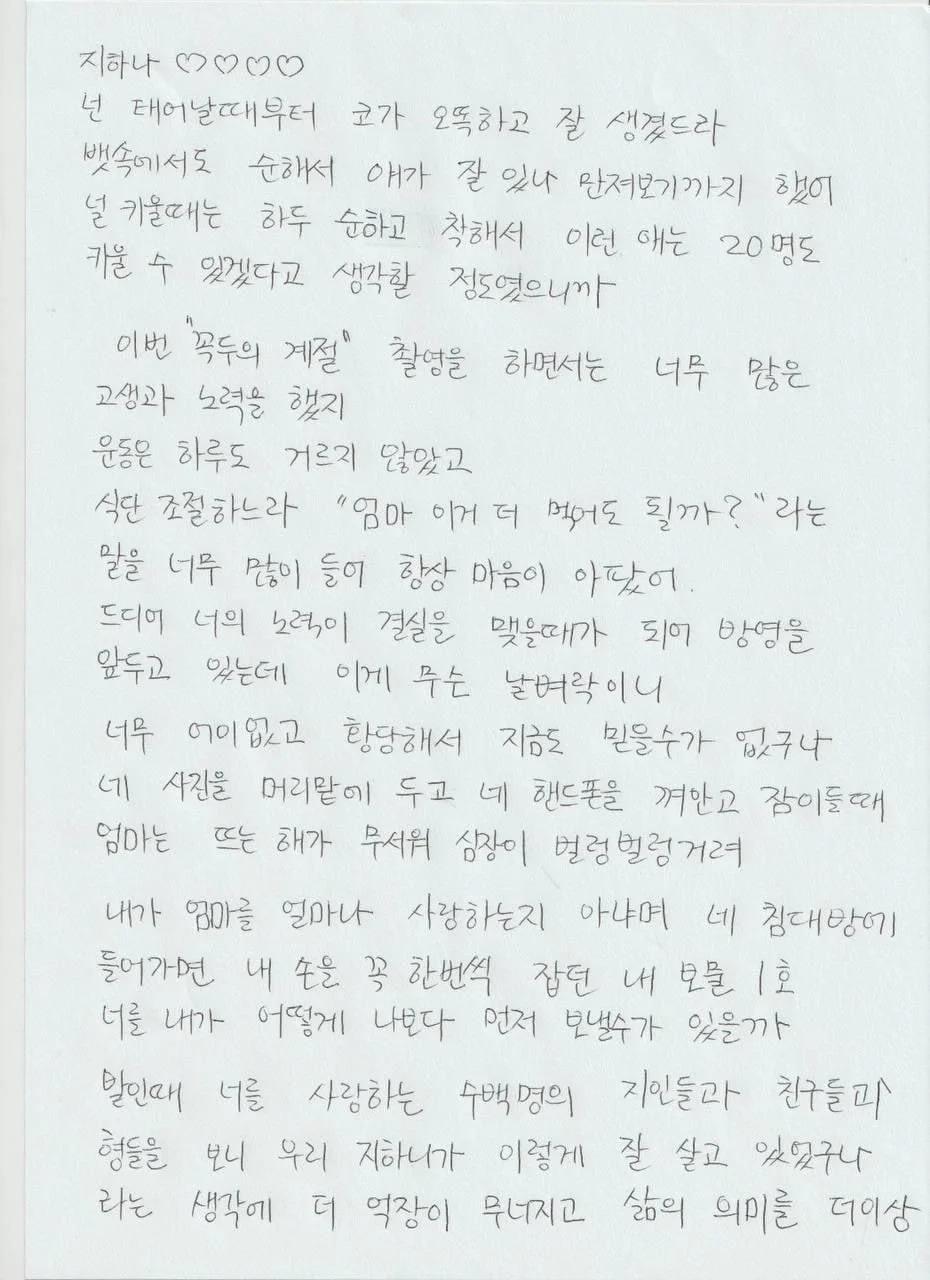 지하나 ♡♡♡♡
넌 태어날때부터 코가 오똑하고 잘 생겼드라
뱃속에서도 순해서 애가 잘 있나 만져보기까지 했어
널 키울때는 하두 순하고 착해서 이런 애는 20명도
키울 수 있겠다고 생각할 정도였으니까
이번 "꼭두의 계절" 촬영을 하면서는 너무 많은
고생과 노력을 했지
운동은 하루도 거르지 않았고
식단 조절하느라 "엄마 이거 더 먹어도 될까?" 라는
말을 너무 많이 들어 항상 마음이 아팠어.
드디어 너의 노력이 결실을 맺을때가 되어 방영을
앞두고 있는데 이게 무슨 날벼락이니
너무 어이없고 황당해서 지금도 믿을수가 없구나
네 사진을 머리맡에 두고 네 핸드폰을 껴안고 잠이들때
엄마는 뜨는 해가 무서워 심장이 벌렁벌렁거려
내가 엄마를 얼마나 사랑하는지 아냐며 네 침대방에
들어가면 내 손을 꼭 한번씩 잡던 내 보물 1호
너를 내가 어떻게 나보다 먼저 보낼수가 있을까
발인때 너를 사랑하는 수백명의 지인들과 친구들과
형들을 보니 우리 지하니가 이렇게 잘 살고 있었구나
라는 생각에 더 억장이 무너지고 삶의 의미를 더이상